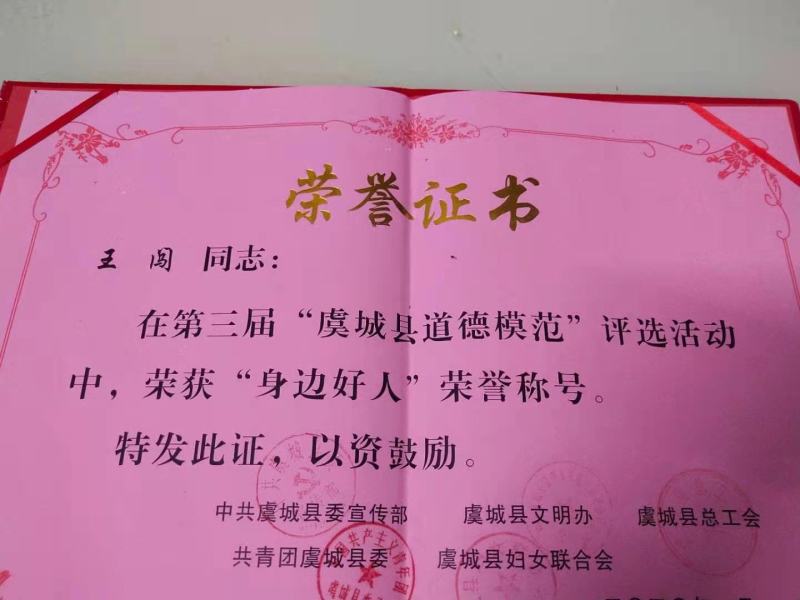 荣誉证书
王闯 同志：
在第三届“虞城县道德模范”评选活动
中，荣获“身边好人”荣誉称号。
特发此证，以资鼓励。
中共虞城县委宣传部 虞城县文明办 虞城县总工会
共青团虞城县委 虞城县妇女联合会